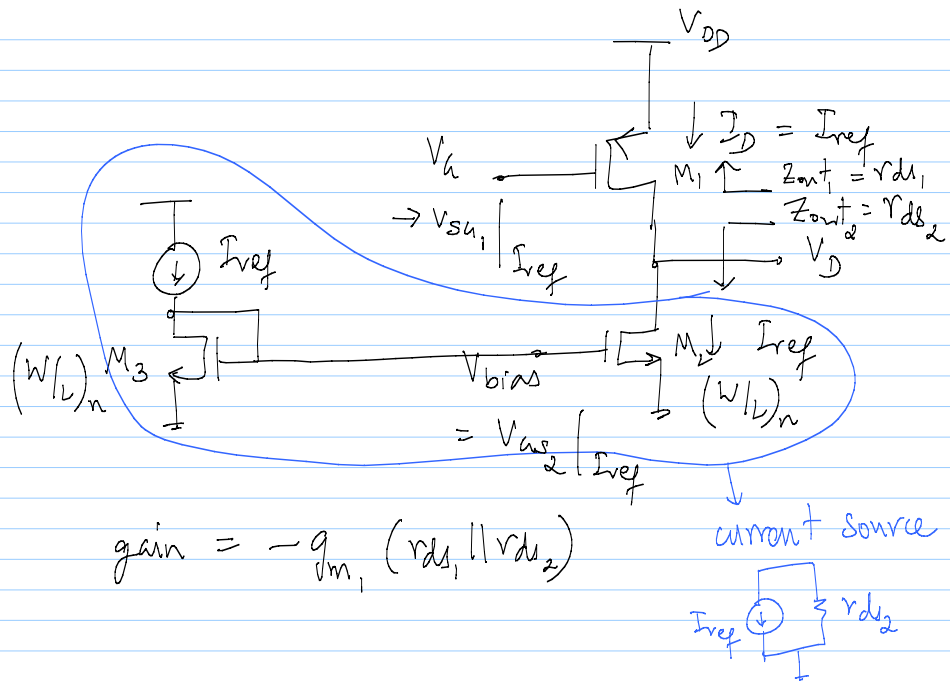 V_DD
↓ I_D = I_ref
V_G
M_1 ↑ Z_out_1 = r_ds_1
→ V_SG_1 | I_ref
Z_out_2 = r_ds_2
V_D
I_ref
(W/L)_n M_3
V_bias
M_2 ↓ I_ref
(W/L)_n
= V_GS_2 | I_ref
gain = - g_m_1 (r_ds_1 || r_ds_2)
current source
I_ref
r_ds_2